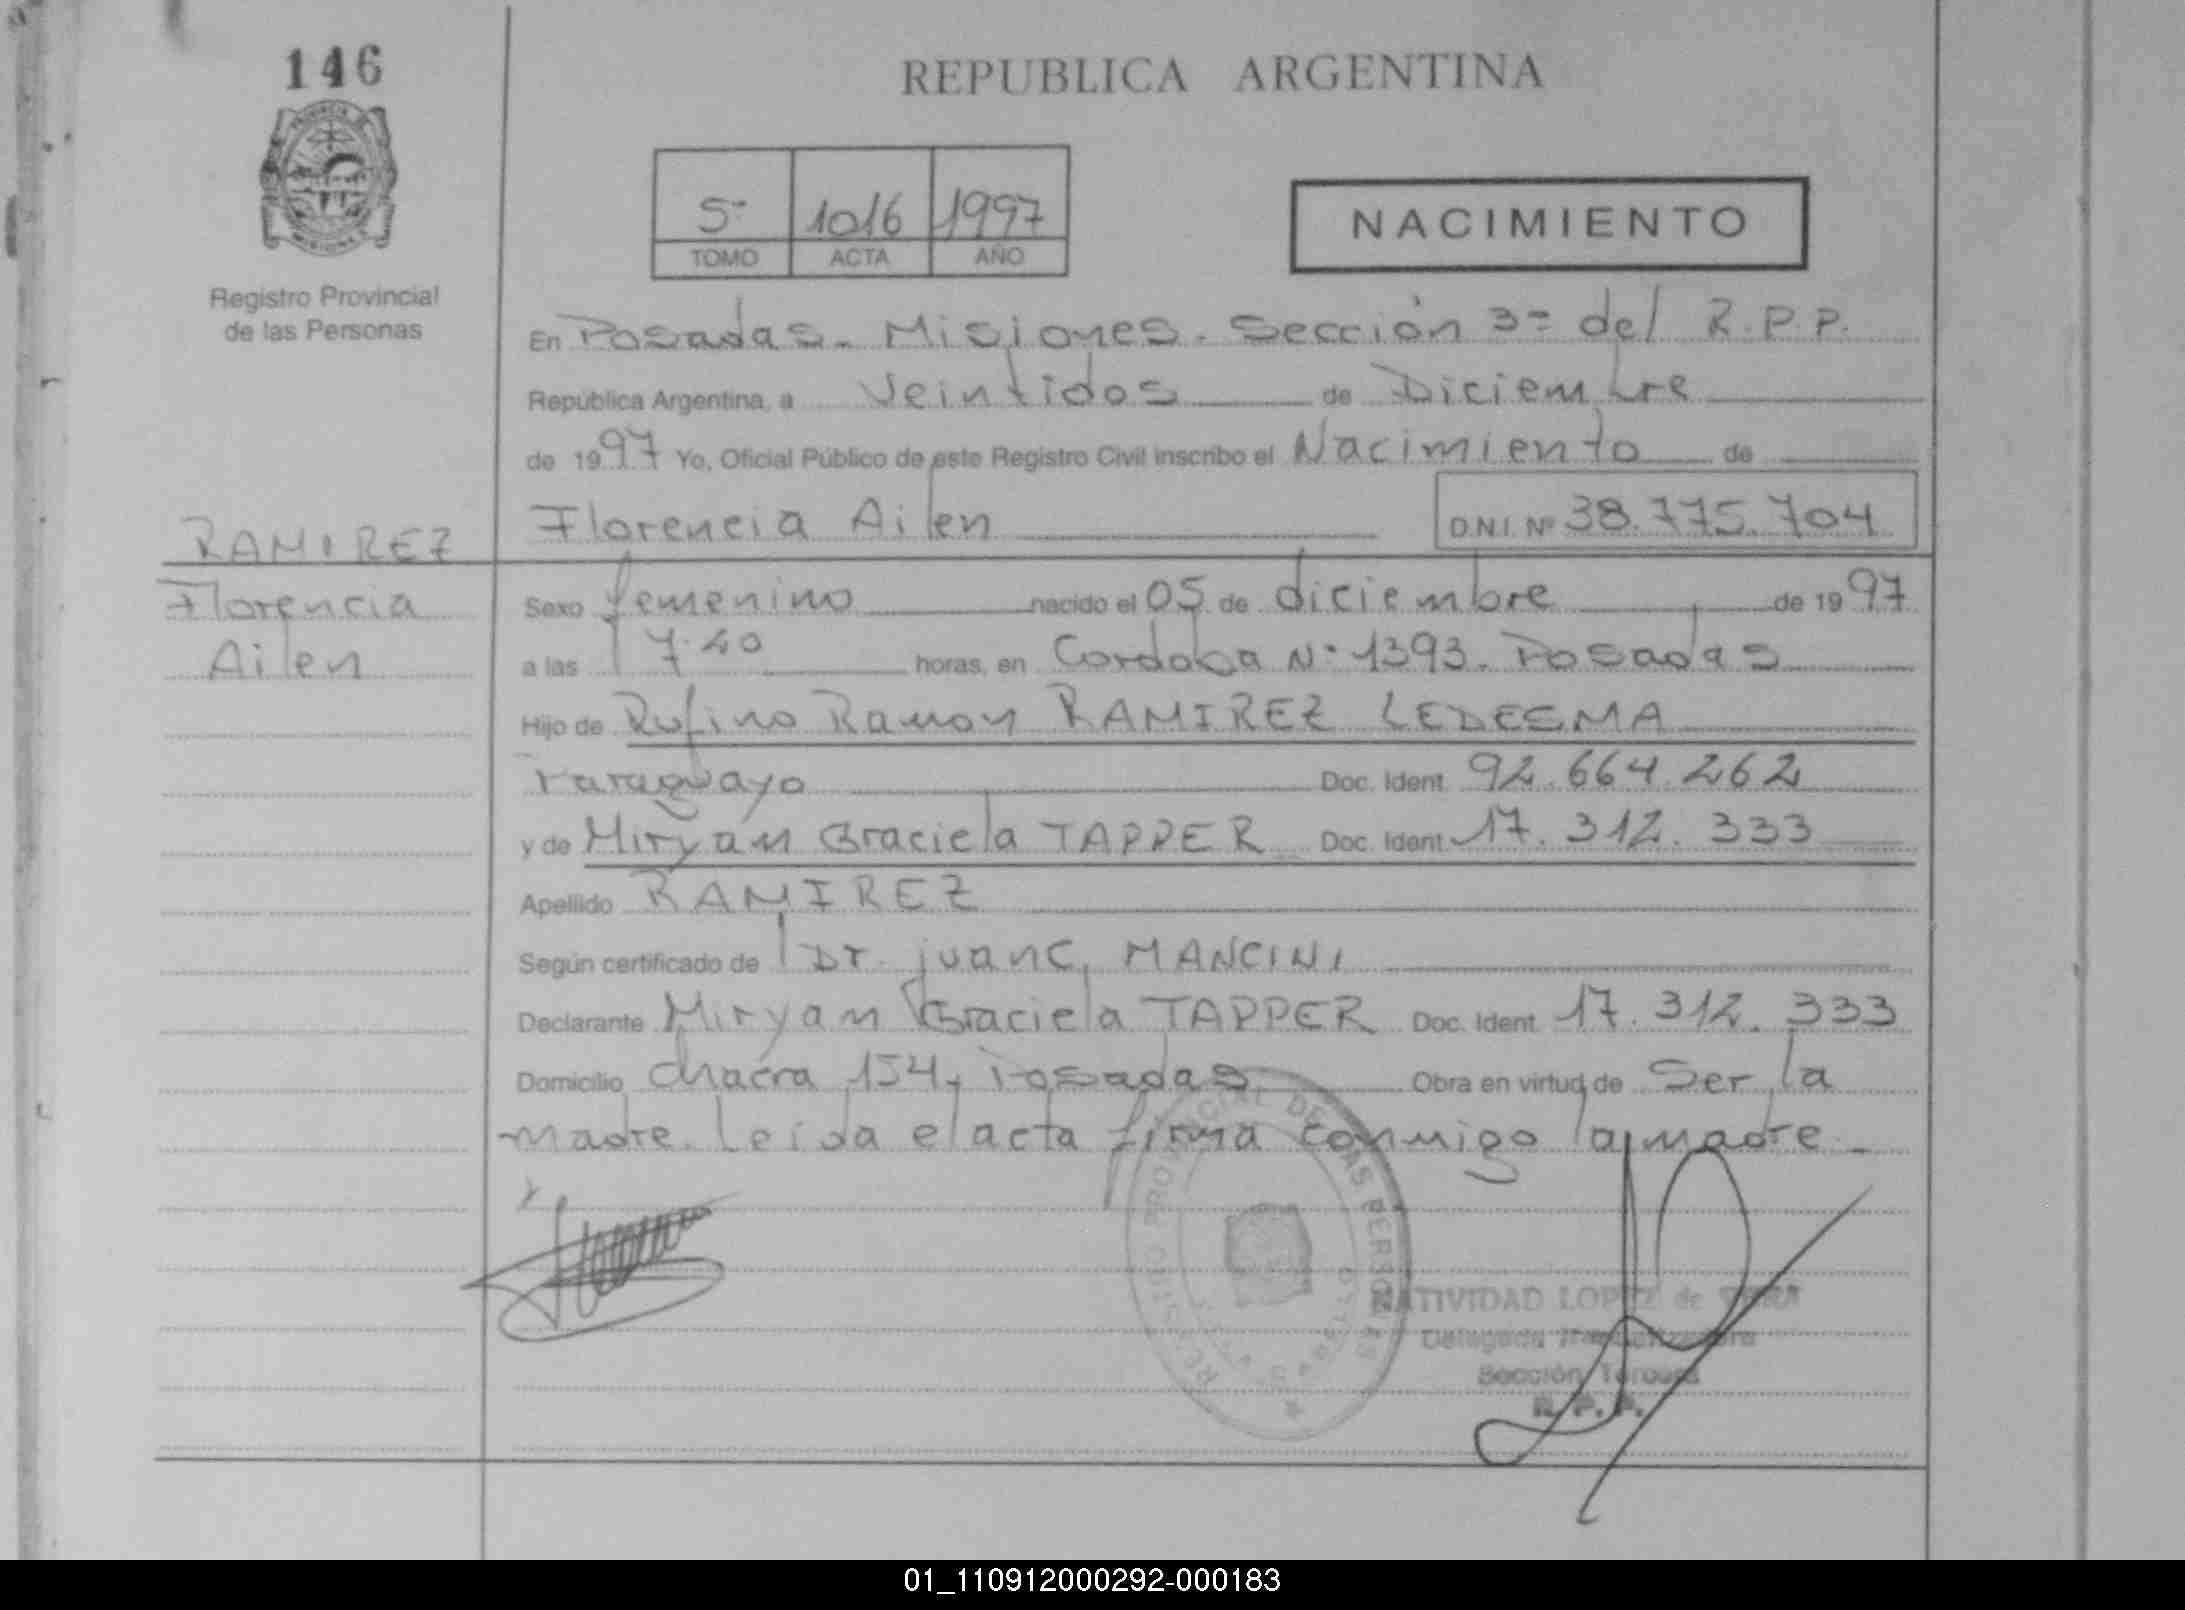 146
REPUBLICA ARGENTINA
5º 1016 1997
TOMO ACTA AÑO
NACIMIENTO
Registro Provincial
de las Personas
En Posadas. Misiones. Sección 3ª del R.P.P.
República Argentina, a Veintidos de Diciembre
de 1997 Yo, Oficial Público de este Registro Civil inscribo el Nacimiento de
Florencia Ailen D.N.I. Nº 38.775.704
RAMIREZ
Florencia
Ailen
Sexo femenino nacido el 05 de diciembre de 1997
a las 7.40 horas, en Cordoba Nº 1393. Posadas
Hijo de Rufino Ramon RAMIREZ LEDESMA
Paraguayo Doc. Ident. 92.664.262
y de Miryam Graciela TAPPER Doc. Ident. 17.312.333
Apellido RAMIREZ
Según certificado de Dr. juan C. MANCINI
Declarante Miryam Graciela TAPPER Doc. Ident. 17.312.333
Domicilio chacra 154, Posadas Obra en virtud de Ser la
madre. Leída el acta firma conmigo la madre.
REGISTRO PROVINCIAL DE LAS PERSONAS
NATIVIDAD LOPEZ de
Delegada
Sección Tercera
R. P. P.
01_110912000292-000183